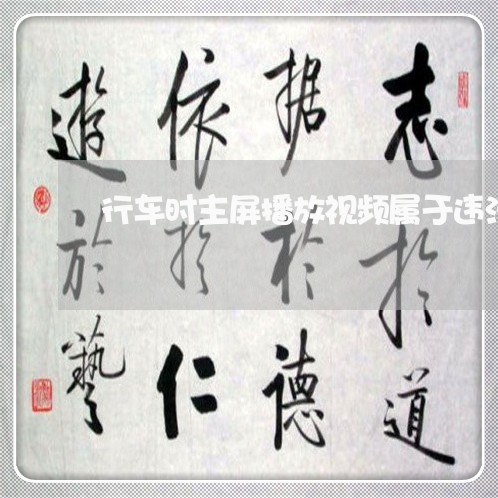 志於道
据於德
依於仁
遊於藝
行车时主屏播放视频属于违